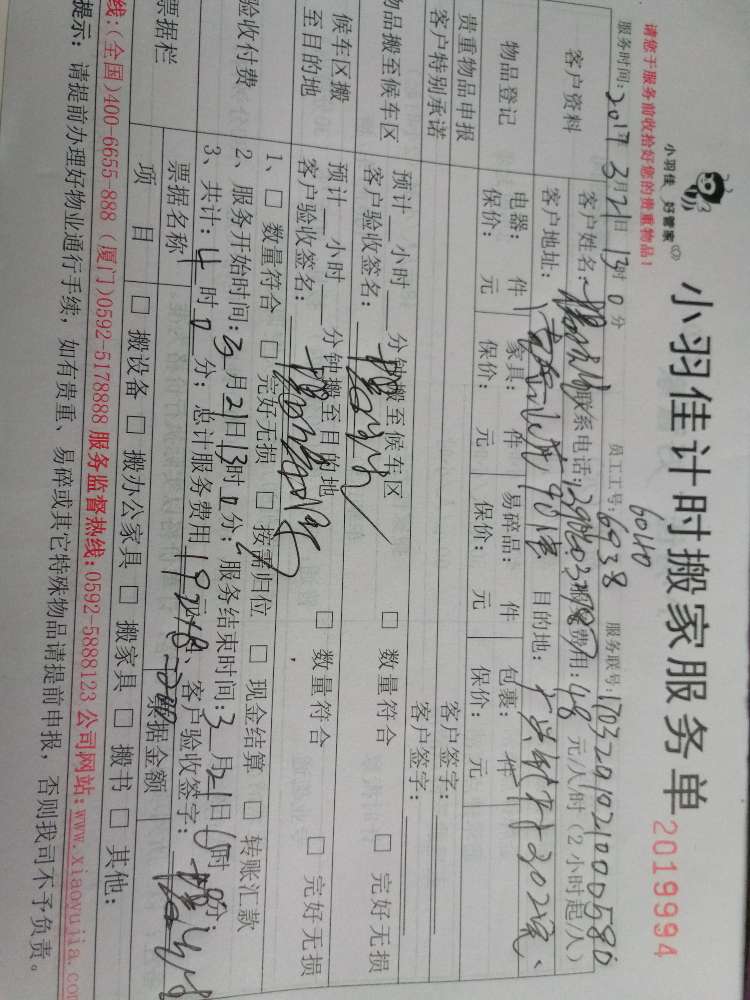 小羽佳 好管家
小羽佳计时搬家服务单
2019994
请您于服务前收拾好您的贵重物品!
60140
服务时间: 2017 3月21日 13时 0 分 员工工号: 6938 服务联号:
客户资料
客户姓名: 联系电话: 服务费用: 48 元/人/时 (2小时起/人)
客户地址: 目的地:
物品登记
电器: 件 家具: 件 易碎品: 件 包裹: 件
保价: 元 保价: 元 保价: 元 保价: 元
贵重物品申报
客户签字:
客户特别承诺
客户签字:
物品搬至候车区
预计 小时 分钟搬至候车区
客户验收签名: □ 数量符合 □ 完好无损
候车区搬至目的地
预计 小时 分钟搬至目的地
客户验收签名: □ 数量符合 □ 完好无损
验收付费
1、□ 数量符合 □ 完好无损 □ 按需归位 □ 现金结算 □ 转账汇款
2、服务开始时间: 3 月 21 日 13 时 0 分; 服务结束时间: 3 月 21 日 时 分;
3、共计: 4 时 0 分; 总计服务费用 客户验收签字:
票据栏
票据名称 票据金额
项 目 □ 搬设备 □ 搬办公家具 □ 搬家具 □ 搬书 □ 其他:
线:(全国)400-6655-888 (厦门)0592-5178888 服务监督热线:0592-5888123 公司网站:www.xiaoyujia.com
提示: 请提前办理好物业通行手续, 如有贵重、易碎或其它特殊物品请提前申报, 否则我司不予负责。